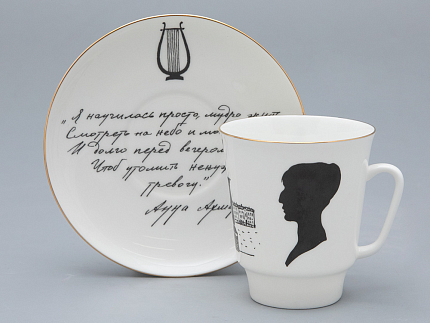 „Я научилась просто, мудро жить
Смотреть на небо и
И долго перед
Чтоб утолить
тревогу."
Анна